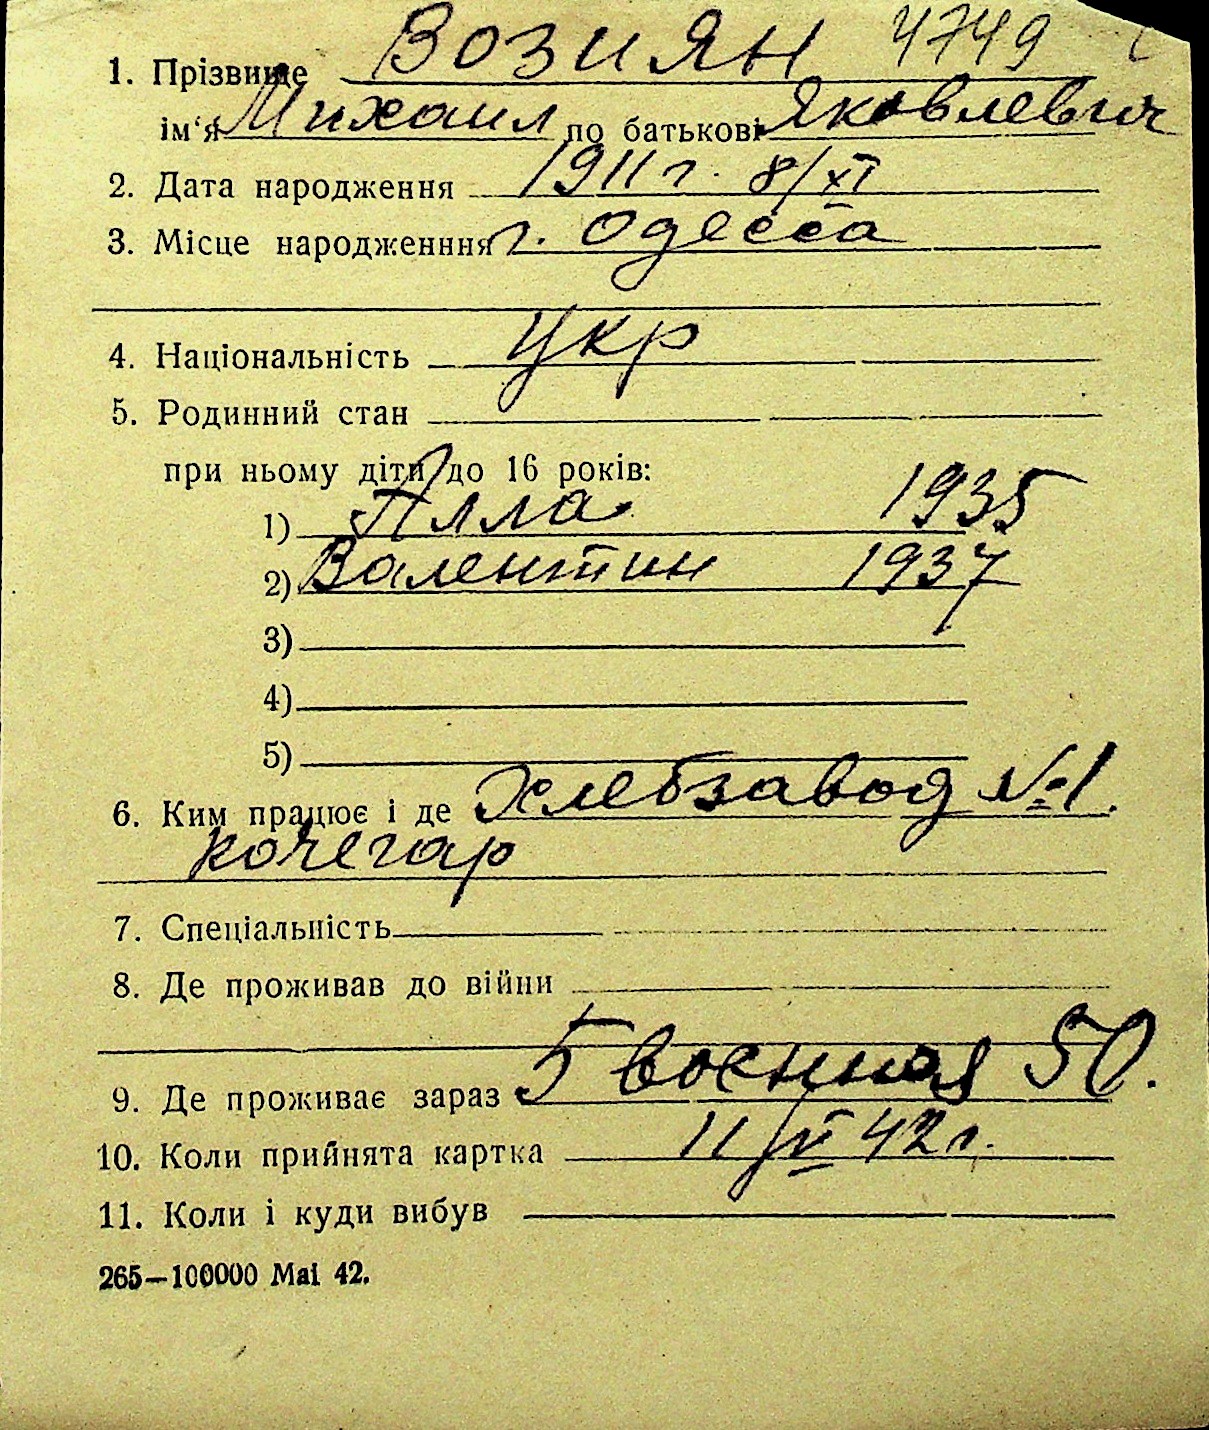 1. Прізвище Возиян 4749
ім'я Михаил по батькові Яковлевич
2. Дата народження 1911 г. 8/XI
3. Місце народженння г. Одесса
4. Національність Укр
5. Родинний стан
при ньому діти до 16 років:
1) Алла 1935
2) Валентин 1937
3)
4)
5)
6. Ким працює і де Хлебзавод №1.
кочегар
7. Спеціальність
8. Де проживав до війни
9. Де проживає зараз 5 военная 50.
10. Коли прийнята картка 11/VI 42 г.
11. Коли і куди вибув
265—100000 Mai 42.